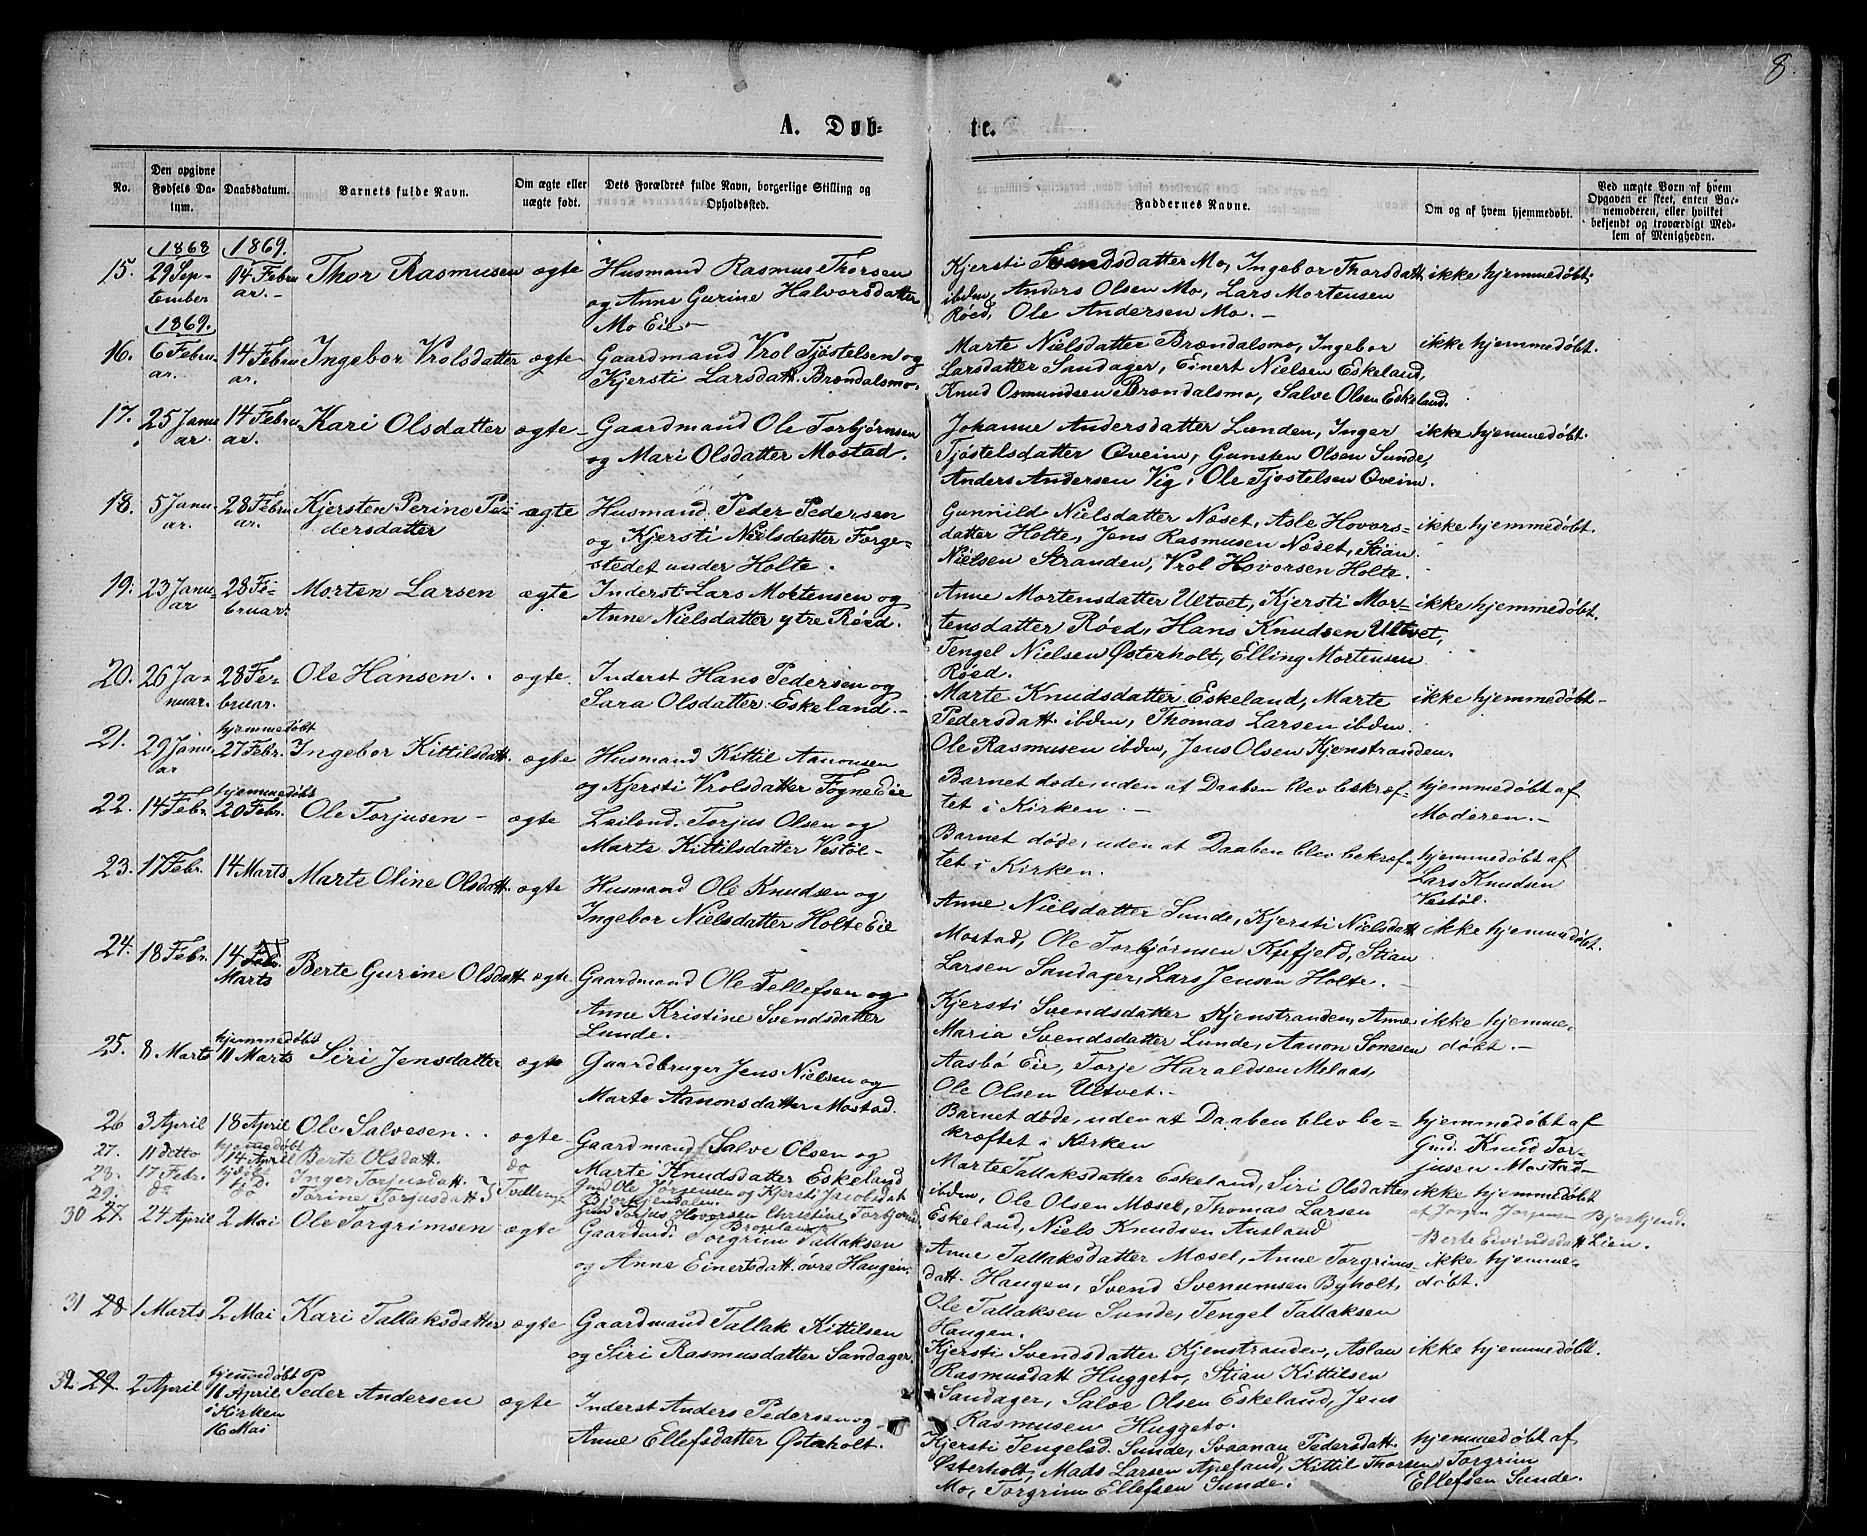 8
A. Døb-
te.
No.
Den opgivne Fødsels Da-
tum.
Daabsdatum.
Barnets fulde Navn.
Om ægte eller
uægte født.
Dets Forældres fulde Navn, borgerlige Stilling og
Opholdssted.
Faddernes Navne.
Om og af hvem hjemmedøbt.
Ved uægte Børn af hvem
Opgaven er skeet, enten Bar-
nemoderen, eller hvilket
bekjendt og troværdigt Med-
lem af Menigheden.
1868 1869.
15. 29 Sep- 14 Febru Thor Rasmusen ægte Husmand Rasmus Thorsen
tember ar. og Anne Gurine Halvorsdatter
Mo Eie
Kjersti Svendsdatter Mo, Ingebor Thorsdatt. ikke hjemmedøbt,
ibdm, Anders Olsen Mo, Lars Mortensen
Røed, Ole Andersen Mo.
1869.
16. 6 Febru 14 Febru Ingebor Vrolsdatter ægte Gaardmand Vrol Tjøstelsen og
ar. ar. Kjersti Larsdatt. Brændalsmo.
Marte Nielsdatter Brændalsmo, Ingebor ikke hjemmedøbt.
Larsdatter Sandager, Einert Nielsen Eskeland,
Knud Osmundsen Brændalsmo, Salve Olsen Eskeland.
17. 25 Janu 14 Febru Kari Olsdatter ægte Gaardmand Ole Torbjørnsen
ar. ar. og Mari Olsdatter Mostad.
Johanne Andersdatter Lunden, Inger ikke hjemmedøbt.
Tjøstelsdatter Øveim, Gunsten Olsen Sunde,
Anders Andersen Vig, Ole Tjøstelsen Øveim.
18. 5 Janu 28 Febru Kjersten Perine Pe- ægte Husmand Peder Pedersen
ar. ar. dersdatter og Kjersti Nielsdatter Forge-
stedet under Holte.
Gunnild Nielsdatter Næset, Asle Hovors- ikke hjemmedøbt.
datter Holte, Jens Rasmusen Næset, Stian
Nielsen Stranden, Vrol Hovorsen Holte.
19. 23 Janu- 28 Fe- Morten Larsen ægte Inderst Lars Mortensen og
ar bruar. Anne Nielsdatter ytre Røed.
Anne Mortensdatter Ultvet, Kjersti Mor- ikke hjemmedøbt.
tensdatter Røed, Hans Knudsen Ultvet,
Tengel Nielsen Østerholt, Elling Mortensen
Røed.
20. 26 Ja- 28 Fe- Ole Hansen ægte. Inderst Hans Pedersen og
nuar. bruar. Sara Olsdatter Eskeland.
Marte Knudsdatter Eskeland, Marte ikke hjemmedøbt
Pedersdatt. ibdm, Thomas Larsen ibdm
Ole Rasmusen ibdm, Jens Olsen Kjenstranden.
hjemmedøbt
21. 29 Janu 27 Febr. Ingebor Kittilsdatt. ægte Husmand Kittil Aanonsen
ar og Kjersti Vrolsdatter Fogne Eie
Barnet døde, uden at Daaben blev bekræf- hjemmedøbt af
tet i Kirken. Moderen.
hjemmedøbt
22. 14 Febr 20 Febr. Ole Torjusen ægte Leilend. Torjus Olsen og
Marte Kittilsdatter Vestøl
Barnet døde, uden at Daaben blev bekræf- hjemmedøbt af
tet i Kirken. Lars Knudsen
Vestøl.
23. 17 Febr. 14 Marts Marte Oline Olsdatt. ægte Husmand Ole Knudsen og
Ingebor Nielsdatter Holte Eie
Anne Nielsdatter Sunde, Kjersti Nielsdatt. ikke hjemmedøbt.
Mostad, Ole Torbjørnsen Kjefjeld, Stian
Larsen Sandager, Lars Jensen Holte.
24. 18 Febr. 14 Febr. Marts Berte Gurine Olsdatt. ægte Gaardmand Ole Tellefsen og
Anne Kristine Svendsdatter
Lunde.
Kjersti Svendsdatter Kjenstranden, Anne ikke hjemme-
Maria Svendsdatter Lunde, Aanon Sonesen døbt.
Aasbø Eie, Torje Haraldsen Melaas,
Ole Olsen Ultvet.
hjemmedøbt
25. 8 Marts 11 Marts Siri Jensdatter ægte Gaardbruger Jens Nielsen og
Marte Aanonsdatter Mostad.
Barnet døde, uden at Daaben blev be- hjemmedøbt af
kræftet i Kirken Gmd. Knud Tor-
jusen Mostad
26 3 April 18 April Ole Salvesen ægte Gaardmand Salve Olsen og
Marte Knudsdatter Eskeland
Marte Tallaksdatter Eskeland, Siri Olsdatter ikke hjemmedøbt
ibdm, Ole Olsen Mæsel, Thomas Larsen
Eskeland, Niels Knudsen Ausland
hjemmedøbt
27. 11 detto 14 April Berte Olsdatt. do Gmd Ole Jørgensen og Kjersti Jacobsdat
Bjorkjendalen
af Jørgen Jørgensen Bjorkjend.
28. 17 Febr. hjdøbt Inger Torjusdatt. Tvillinge Gmd Torjus Hovorsen Christine Torbjørnsd.
29. do do Torine Torjusdatt.
Berte Eivindsdatt Lien.
30 27 24 April 2 Mai Ole Torgrimsen ægte Gaardmd. Torgrim Tallaksen
og Anne Einertsdatt. øvre Haugen.
Anne Tallaksdatter Mæsel, Anne Torgrims- ikke hjemme-
datt. Haugen, Svend Svenumsen Byholt, døbt.
Ole Tallaksen Sunde, Tengel Tallaksen
Haugen.
31 28 1 Marts 2 Mai Kari Tallaksdatter ægte Gaardmand Tallak Kittilsen
og Siri Rasmusdatter Sandager.
Kjersti Svendsdatter Kjenstranden, Aslau ikke hjemmedøbt.
Rasmusdatt Huggeto, Stian Kittilsen
Sandager, Salve Olsen Eskeland, Jens
Rasmusen Huggeto.
hjemmedøbt
32 29. 2 April 11 April Peder Andersen ægte Inderst Anders Pedersen og
i Kirken Anne Ellefsdatter Østerholt.
16 Mai
Kjersti Tengelsd. Sunde, Svaanau Pedersdatt. hjemmedøbt af
Østerholt, Mads Larsen Apeland, Kittil Thorsen Torgrim
Mo, Torgrim Ellefsen Sunde. Ellefsen Sunde.